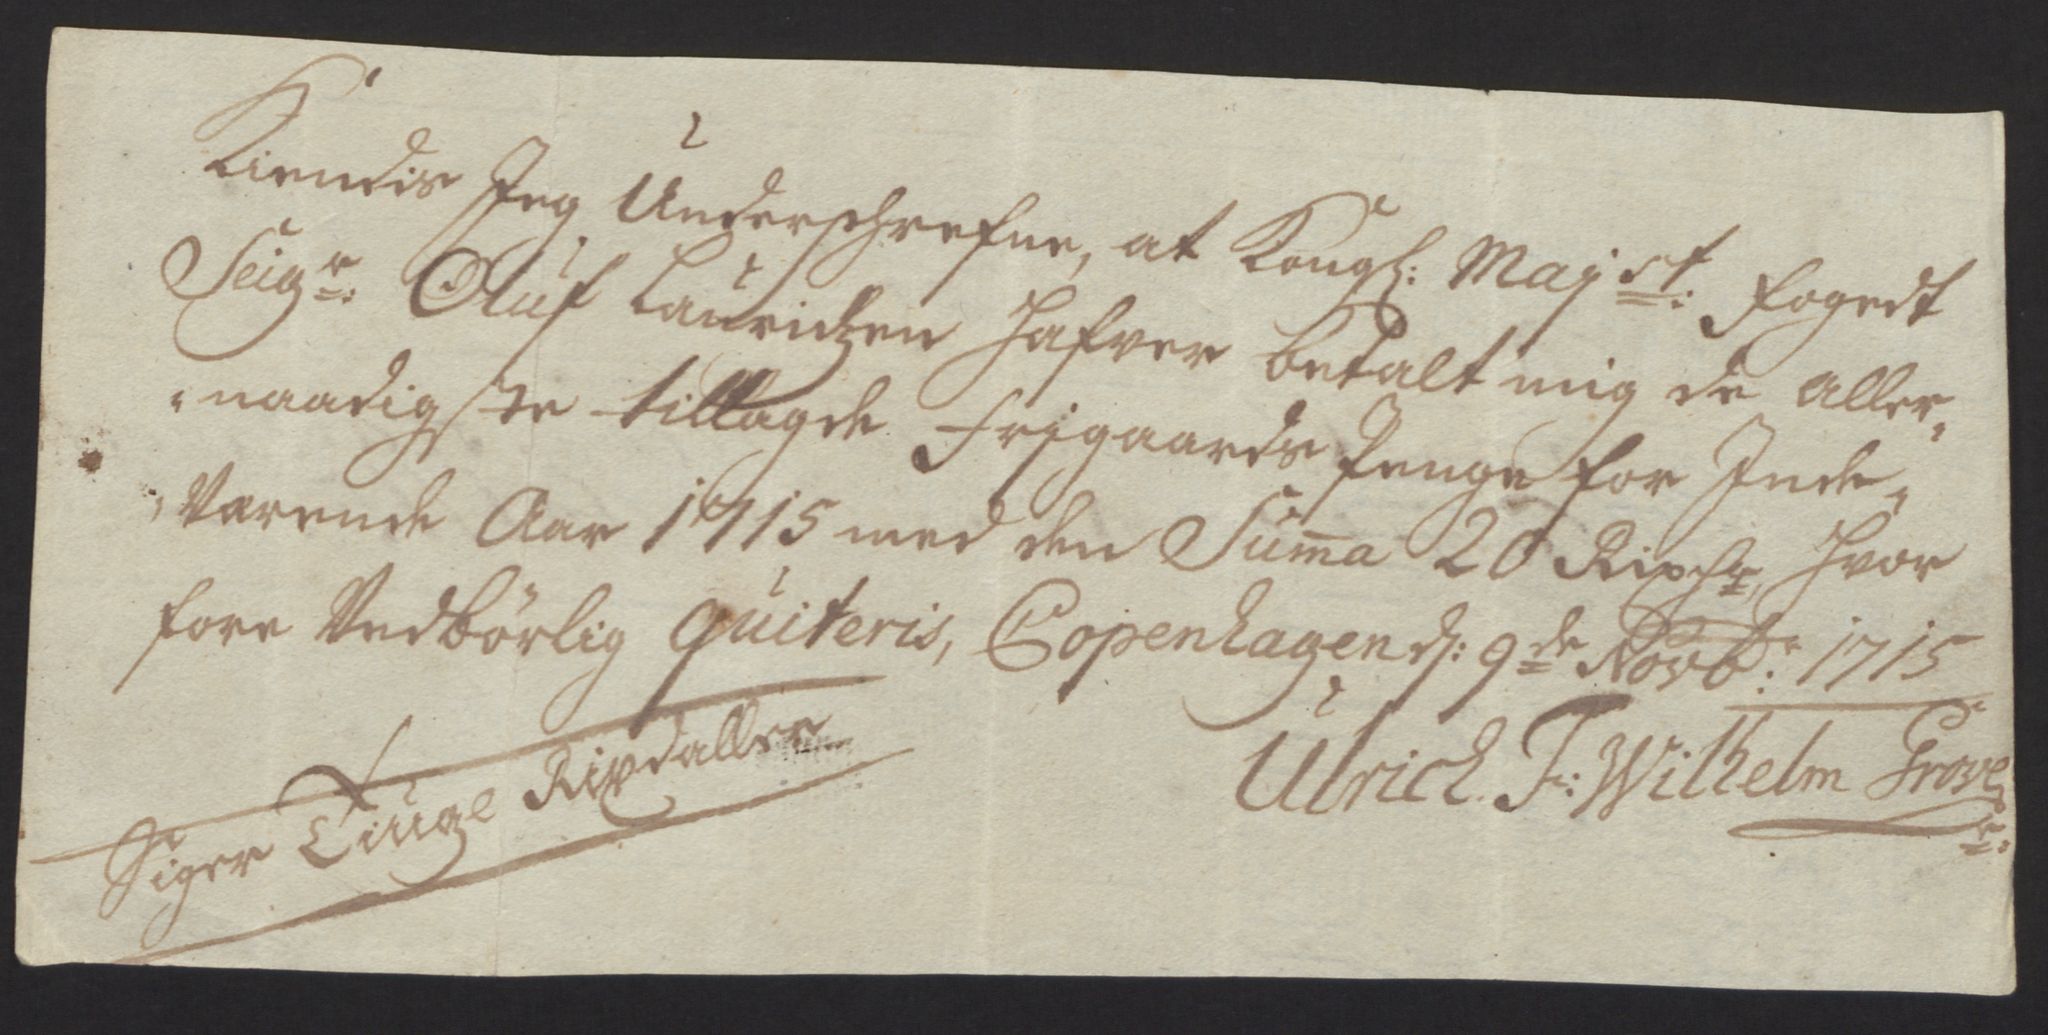 Kiendis Jeg Underschrefne, at Kongl: Maj:st: fogedt
Seigr: Oluf Lauridtzen Hafver betalt mig de aller-
naadigste tillagde Frigaards Penge for Inde-
Værende Aar 1715 med den Summa 20 Rixdr, Hvor
fore Vedbörlig quiteris, Copenhagen d: 9de Novbr: 1715
Ulrich F: Wilhelm Grove
Siger Tiuge Rixdaller